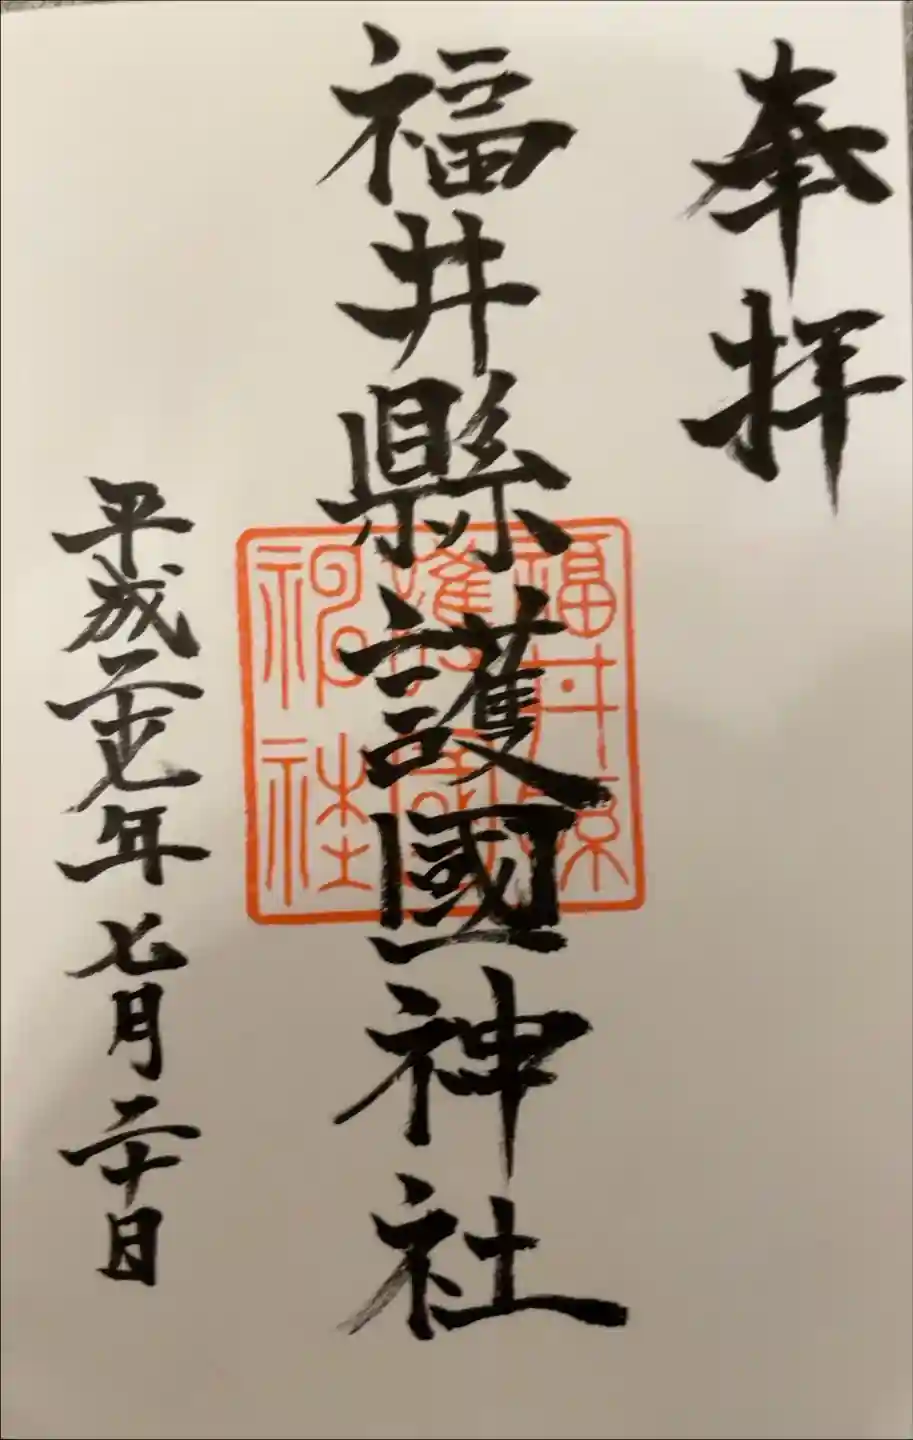 奉拝
福井縣護國神社
福井縣護國神社
平成二十七年七月二十日